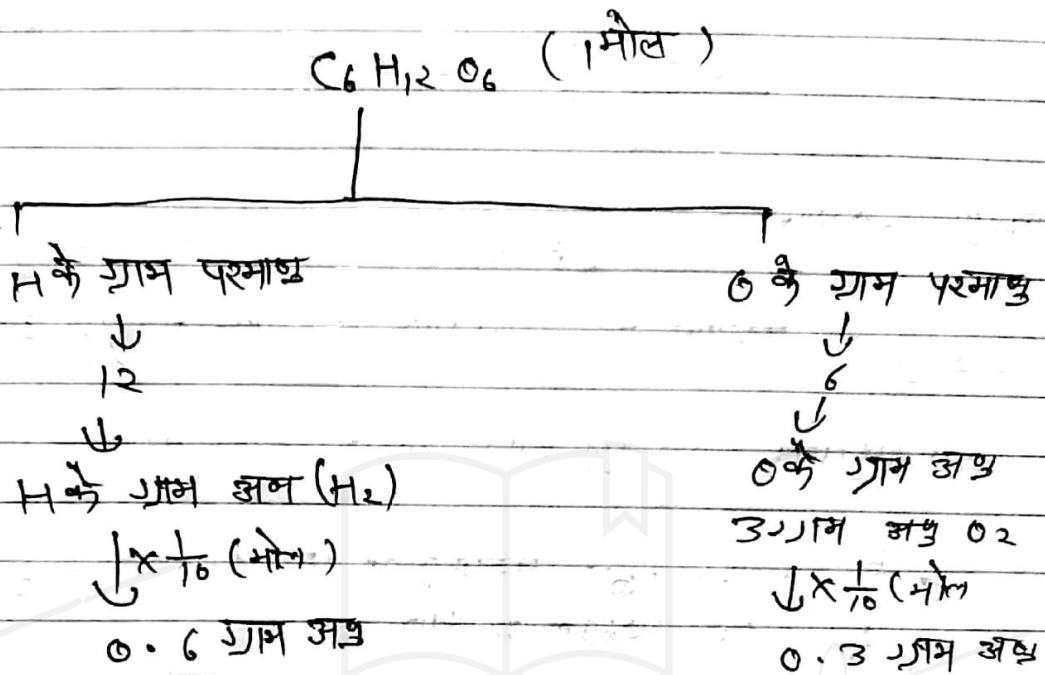 C₆H₁₂O₆ (1 मोल)
H के ग्राम परमाणु
↓
12
↓
H के ग्राम अणु (H₂)
↓ × 1/10 (मोल)
0.6 ग्राम अणु
O के ग्राम परमाणु
↓
6
↓
O के ग्राम अणु
3 ग्राम अणु O2
↓ × 1/10 (मोल
0.3 ग्राम अणु